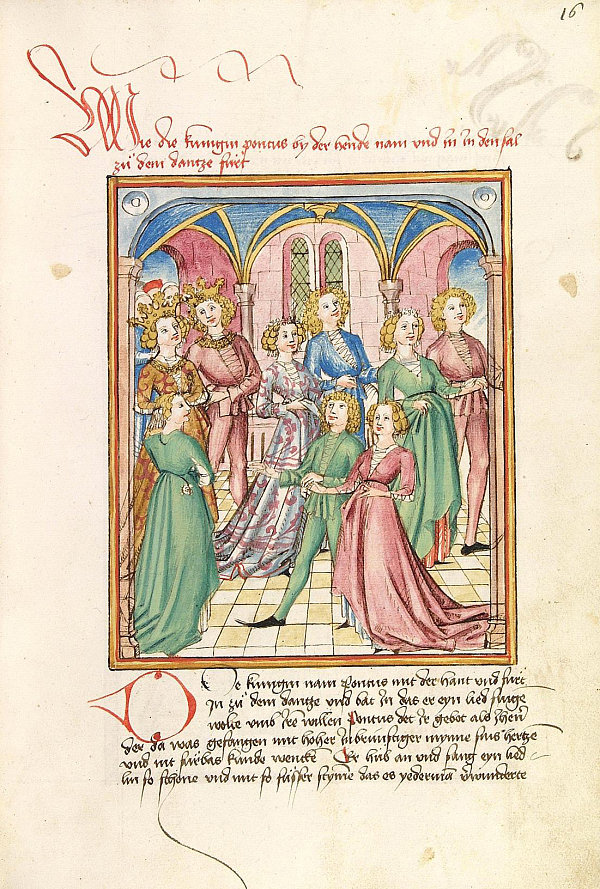 16
Wie die kunigin pontus by der hende nam vnd in in den sal
zu dem dantze furt
Die kunigin nam Pontus mit der hant vnd furt
In zu dem dantze vnd bat in das er eyn lied singe
wolte vmb iren willen Pontus det ir gebot als ihen
der da was gefangen mit hoher inbrunstiger mynne sins hertze
vnd mit sin hub an vnd sang eyn lied
lin so schone vnd mit so susser stymme das es yederman verwunderte